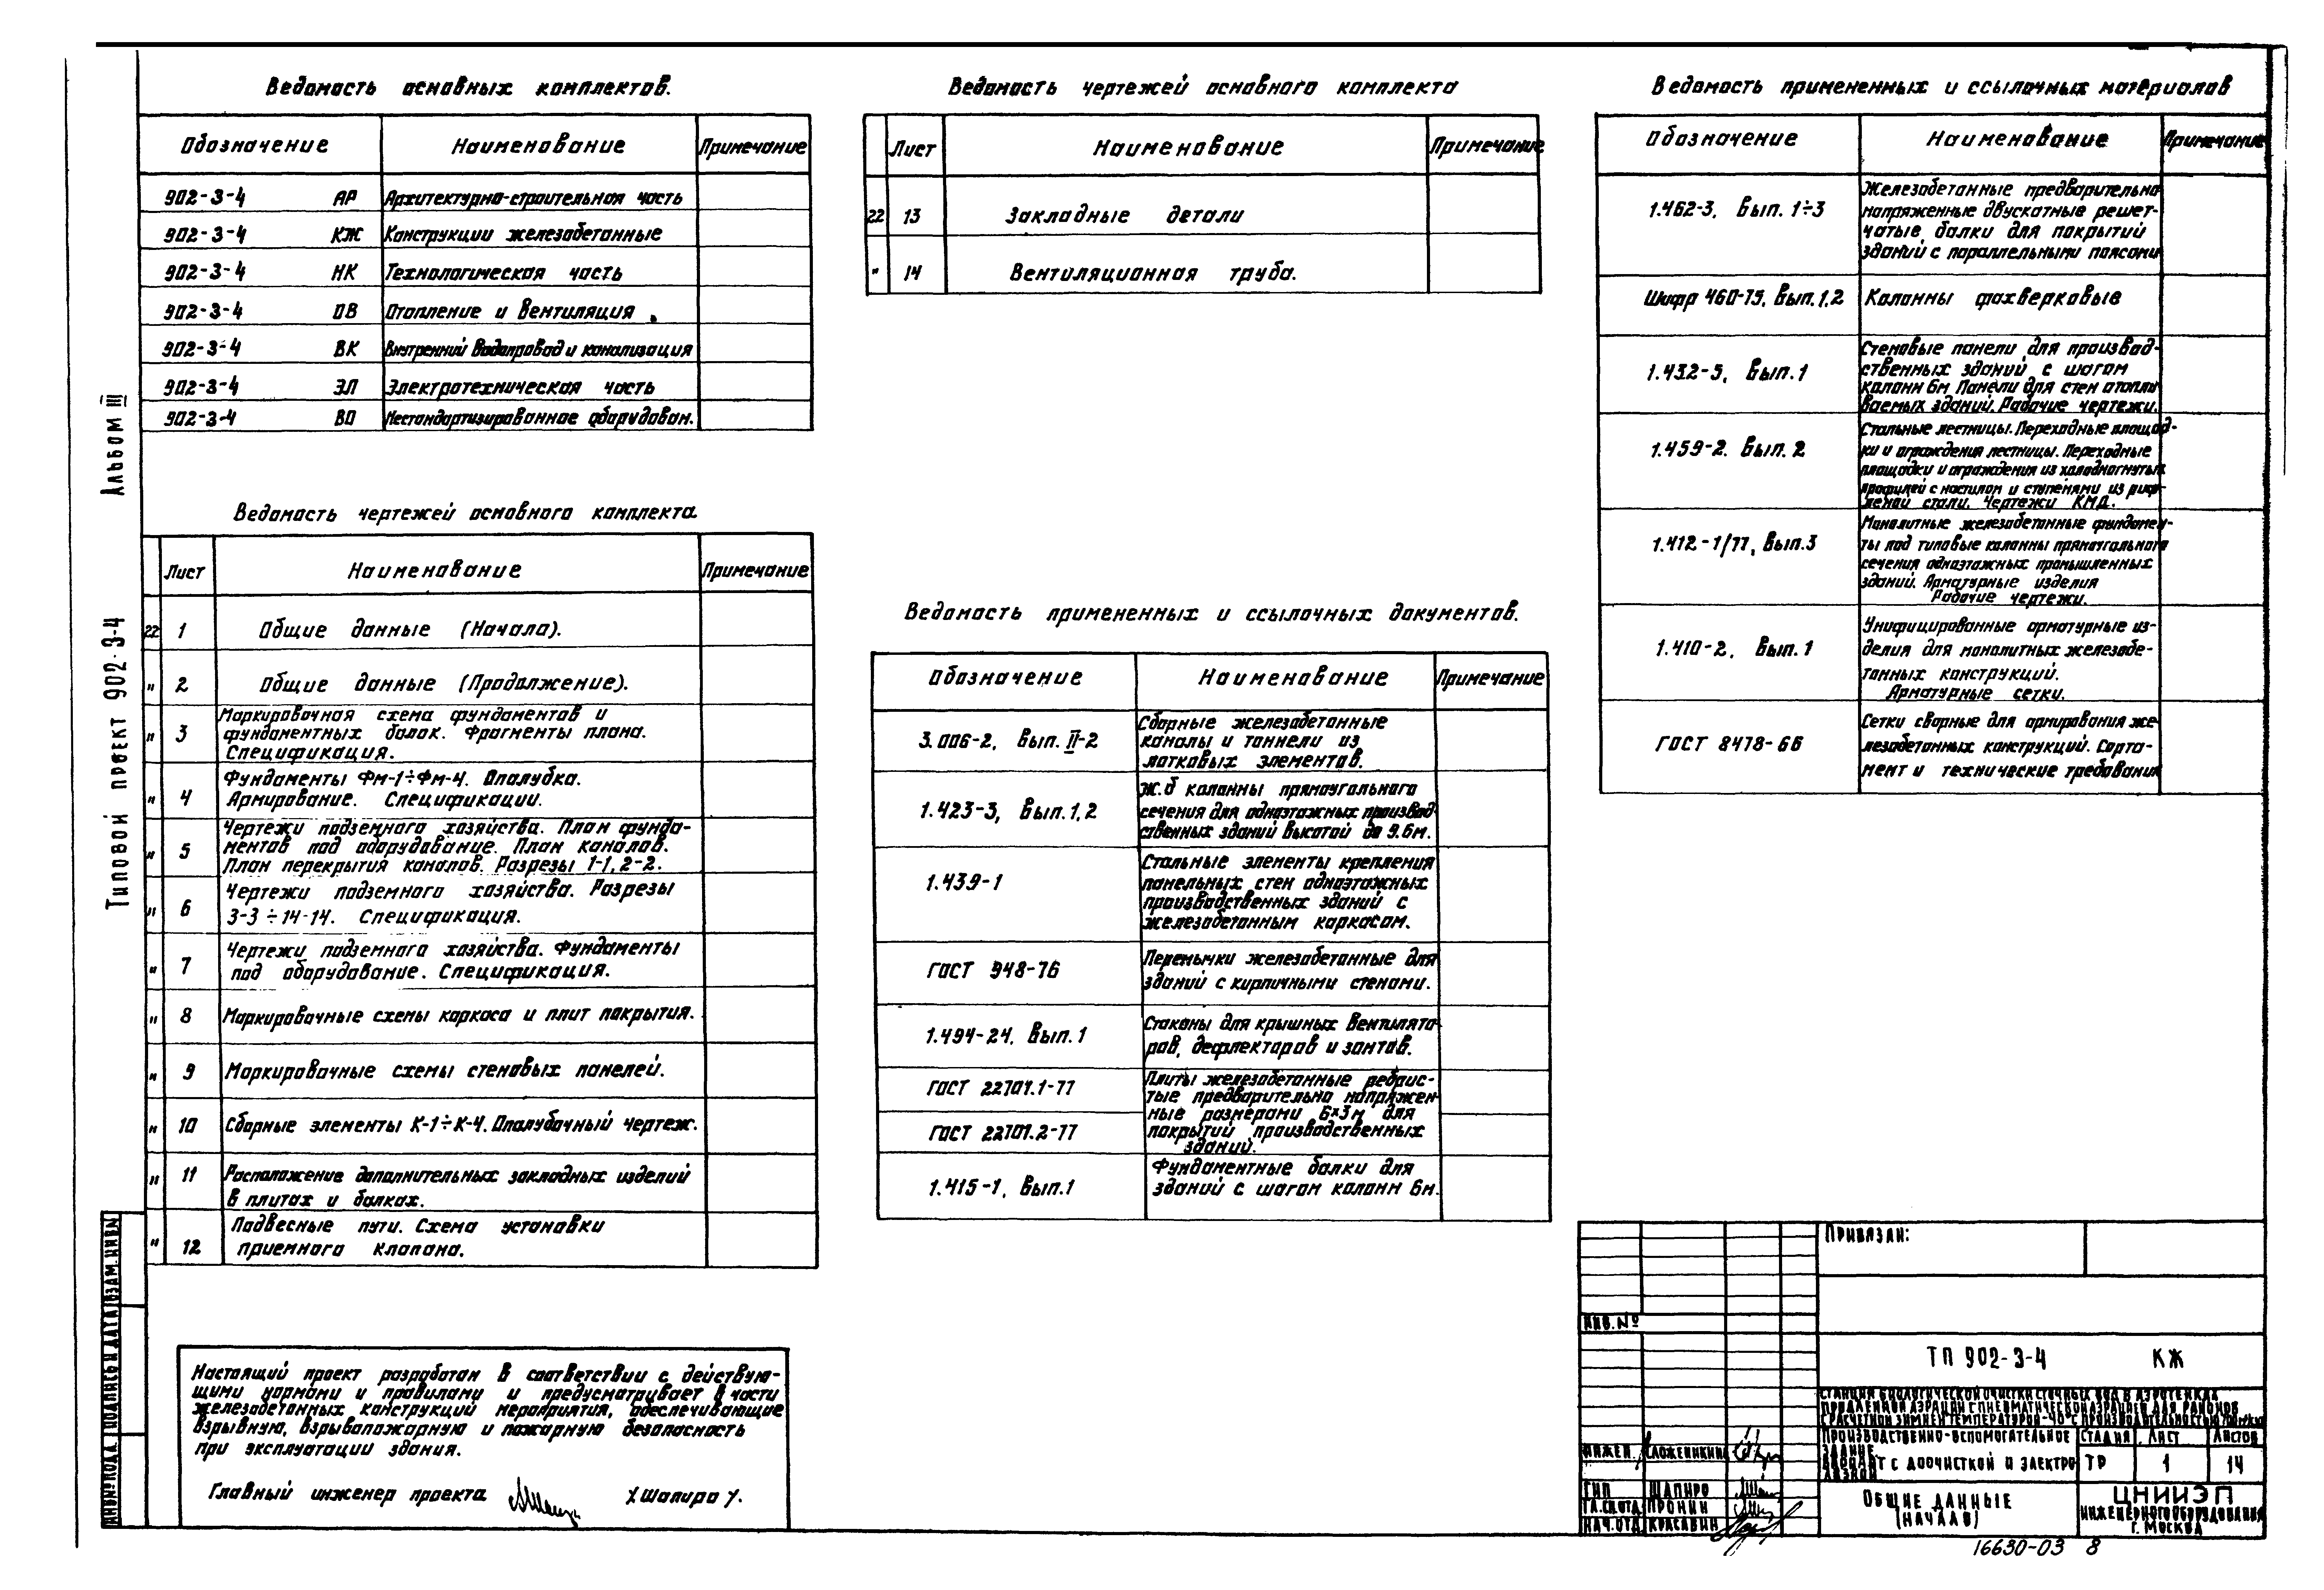 Ведомость основных комплектов.
Обозначение Наименование Примечание
902-3-4 АР Архитектурно-строительная часть
902-3-4 КЖ Конструкции железобетонные
902-3-4 НК Технологическая часть
902-3-4 ОВ Отопление и вентиляция
902-3-4 ВК Внутренний водопровод и канализация
902-3-4 ЭЛ Электротехническая часть
902-3-4 ВО Нестандартизированное оборудован.
Ведомость чертежей основного комплекта
Лист Наименование Примечание
22 1 Общие данные (Начало).
" 2 Общие данные (Продолжение).
" 3 Маркировочная схема фундаментов и
фундаментных балок. Фрагменты плана.
Спецификация.
" 4 Фундаменты Фм-1÷Фм-4. Опалубка.
Армирование. Спецификации.
" 5 Чертежи подземного хозяйства. План фунда-
ментов под оборудование. План каналов.
План перекрытия каналов. Разрезы 1-1, 2-2.
" 6 Чертежи подземного хозяйства. Разрезы
3-3÷14-14. Спецификация.
" 7 Чертежи подземного хозяйства. Фундаменты
под оборудование. Спецификация.
" 8 Маркировочные схемы каркаса и плит покрытия.
" 9 Маркировочные схемы стеновых панелей.
" 10 Сборные элементы К-1÷К-4. Опалубочный чертеж.
" 11 Расположение дополнительных закладных изделий
в плитах и балках.
" 12 Подвесные пути. Схема установки
приемного клапана.
Настоящий проект разработан в соответствии с действую-
щими нормами и правилами и предусматривает в части
железобетонных конструкций мероприятия, обеспечивающие
взрывную, взрывопожарную и пожарную безопасность
при эксплуатации здания.
Главный инженер проекта /Шапиро/.
Ведомость чертежей основного комплекта
Лист Наименование Примечание
22 13 Закладные детали
" 14 Вентиляционная труба.
Ведомость примененных и ссылочных документов.
Обозначение Наименование Примечание
3.006-2, Вып. II-2 Сборные железобетонные
каналы и тоннели из
лотковых элементов.
1.423-3, Вып. 1,2 Ж.б колонны прямоугольного
сечения для одноэтажных производ-
ственных зданий высотой до 9.6м.
1.439-1 Стальные элементы крепления
панельных стен одноэтажных
производственных зданий с
железобетонным каркасом.
ГОСТ 948-76 Перемычки железобетонные для
зданий с кирпичными стенами.
1.494-24, Вып. 1 Стаканы для крышных вентилято-
ров, дефлекторов и зонтов.
ГОСТ 22701.1-77 Плиты железобетонные ребрис-
тые предварительно напряжен
ные размерами 6×3м для
ГОСТ 22701.2-77 покрытий производственных
зданий.
1.415-1, Вып.1 Фундаментные балки для
зданий с шагом колонн 6м.
Ведомость примененных и ссылочных материалов
Обозначение Наименование Примечание
1.462-3, Вып. 1÷3 Железобетонные предварительно
напряженные двускатные решет-
чатые балки для покрытий
зданий с параллельными поясами
Шифр 460-75, Вып. 1,2 Колонны фахверковые
1.432-5, Вып. 1 Стеновые панели для производ-
ственных зданий с шагом
колонн 6м Панели для стен отапли
ваемых зданий. Рабочие чертежи.
1.459-2. Вып. 2 Стальные лестницы. Переходные площад-
ки и ограждения лестницы. Переходные
площадки и ограждения из холодногнутых
профилей с настилом и ступенями из риф-
леной стали. Чертежи КМД.
1.412-1/77, Вып.3 Монолитные железобетонные фундамен-
ты под типовые колонны прямоугольного
сечения одноэтажных промышленных
зданий. Арматурные изделия
Рабочие чертежи.
1.410-2, Вып. 1 Унифицированные арматурные из-
делия для монолитных железобе-
тонных конструкций.
Арматурные сетки.
ГОСТ 8478-66 Сетки сварные для армирования же
лезобетонных конструкций. Сорта-
мент и технические требования
Привязан:
Инв. №
ТП 902-3-4 КЖ
Станция биологической очистки сточных вод в аэротенках
продленной аэрации с пневматической аэрацией для районов
с расчетной зимней температурой -40°С производительностью
Производственно-вспомогательное Стадия Лист Листов
здание
с доочисткой и электро ТР 1 14
Инжен.
ГИП Шапиро
Гл.спец.отд Пронин
Нач.отд Красавин
Общие данные
(Начало)
ЦНИИЭП
инженерного оборудования
г. Москва
16630-03 8
Альбом III
Типовой проект 902-3-4
Инв.№подл. Подпись и дата Взам.инв.№